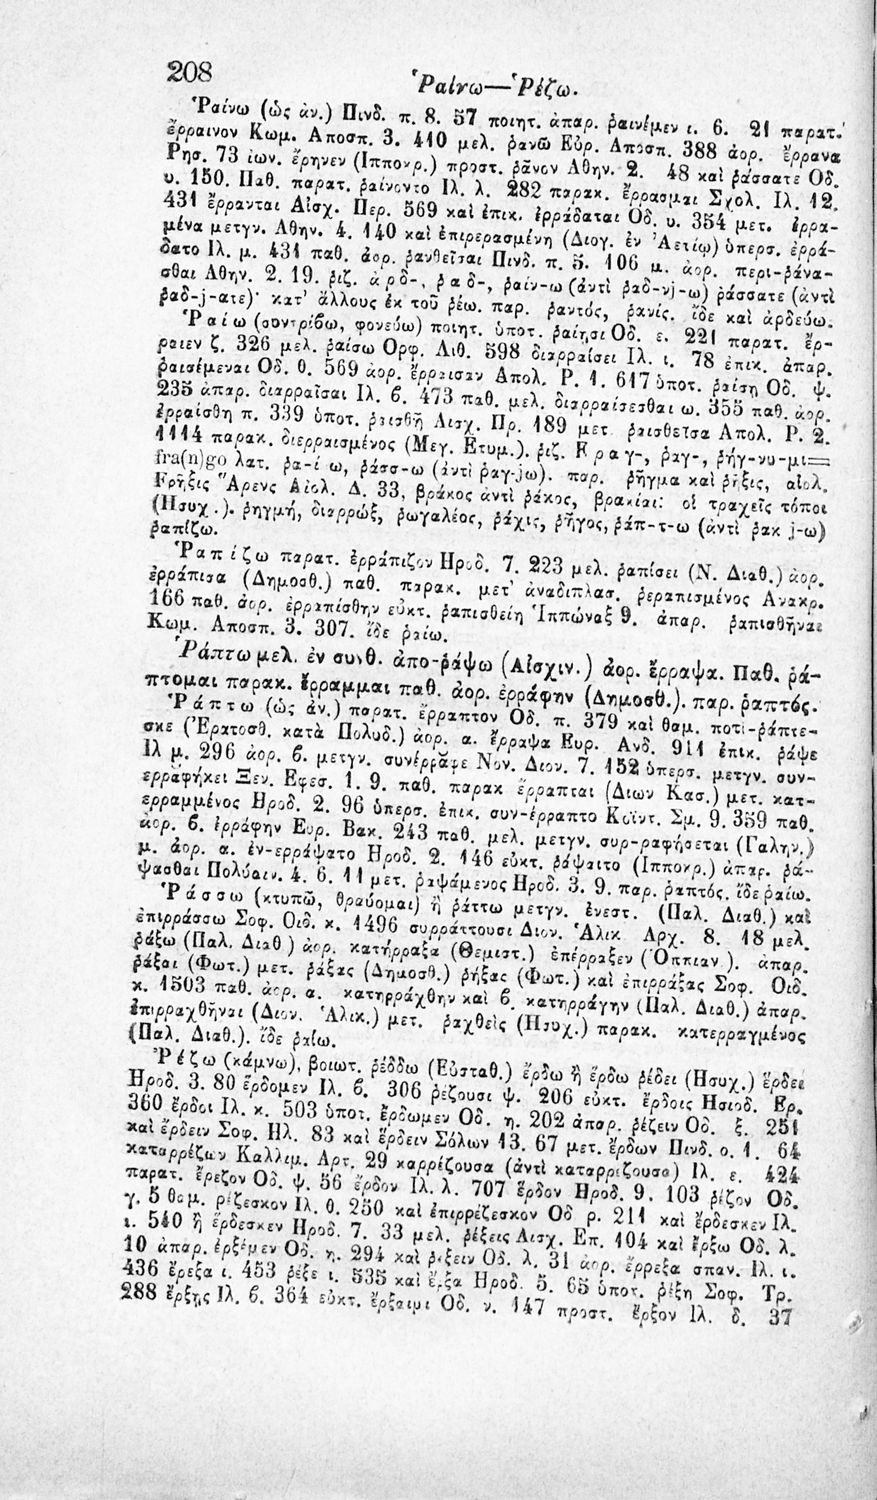 208
Ῥαίνω—Ῥέζω.
Ῥαίνω (ὡς ἀν.) Πινδ. π. 8. 57 ποιητ. ἀπαρ. ῥαινέμεν ι. 6. 21 παρατ.
ἔρραινον Κωμ. Αποσπ. 3. 410 μελ. ῥανῶ Εὐρ. Αποσπ. 388 ἀορ. ἔρρανα
Ρησ. 73 ἰων. ἔρηνεν (Ιπποκρ.) προστ. ῥᾶνον Αθην. 2. 48 καὶ ῥάσσατε Οδ.
υ. 150. Παθ. παρατ. ῥαίνοντο Ιλ. λ. 282 παρακ. ἔρρασμαι Σχολ. Ιλ. 12.
431 ἔρρανται Αἰσχ. Περ. 569 καὶ ἐπικ. ἐρράδαται Οδ. υ. 354 μετ. ἐρρα-
μένα μετγν. Αθην. 4. 140 καὶ ἐπιρερασμένη (Διογ. ἐν Ἀετίῳ) ὑπερσ. ἐρρά-
δατο Ιλ. μ. 431 παθ. ἀορ. ῥανθεῖσαι Πινδ. π. 5. 106 μ. ἀορ. περι-ῥάνα-
σθαι Αθην. 2. 19. ῥιζ. ἀρδ-, ῥαδ-, ῥαίν-ω (ἀντὶ ῥαδ-νj-ω) ῥάσσατε (ἀντὶ
ῥαδ-j-ατε)· κατ' ἄλλους ἐκ τοῦ ῥέω. παρ. ῥαντός, ῥανίς. ἴδε καὶ ἀρδεύω.
Ῥαίω (συντρίβω, φονεύω) ποιητ. ὑποτ. ῥαίῃσι Οδ. ε. 221 παρατ. ἔρ-
ραιεν ζ. 326 μελ. ῥαίσω Ορφ. Λιθ. 598 διαρραίσει Ιλ. ι. 78 ἐπικ. ἀπαρ.
ῥαισέμεναι Οδ. θ. 569 ἀορ. ἔρραισαν Απολ. Ρ. 1. 617 ὑποτ. ῥαίσῃ Οδ. ψ.
235 ἀπαρ. διαρραῖσαι Ιλ. β. 473 παθ. μελ. διαρραίσεσθαι ω. 355 παθ. ἀορ.
ἐρραίσθη π. 339 ὑποτ. ῥαισθῇ Αισχ. Πρ. 189 μετ. ῥαισθεῖσα Απολ. Ρ. 2.
1114 παρακ. διερραισμένος (Μεγ. Ετυμ.). ῥιζ. Fραγ-, ῥαγ-, ῥήγ-νυ-μι=
fra(n)go λατ. ῥα-ί ω, ῥάσσ-ω (ἀντὶ ῥαγ-jω). παρ. ῥῆγμα καὶ ῥῆξις, αἰολ.
Fρῆξις Ἄρευς Αἰολ. Δ. 33, βράκος ἀντὶ ῥάκος, βρακίαι: οἱ τραχεῖς τόποι
(Ησυχ.). ῥηγμή, διαρρώξ, ῥωγαλέος, ῥάχις, ῥῆγος, ῥάπ-τ-ω (ἀντὶ ῥακ j-ω)
ῥαπίζω.
Ῥαπίζω παρατ. ἐρράπιζον Ηροδ. 7. 223 μελ. ῥαπίσει (Ν. Διαθ.) ἀορ.
ἐρράπισα (Δημοσθ.) παθ. παρακ. μετ' ἀναδιπλασ. ῥεραπισμένος Ανακρ.
166 παθ. ἀορ. ἐρραπίσθην εὐκτ. ῥαπισθείη Ἱππώναξ 9. ἀπαρ. ῥαπισθῆναι
Κωμ. Αποσπ. 3. 307. ἴδε ῥαίω.
Ῥάπτω μελ. ἐν συνθ. ἀπο-ῥάψω (Αἰσχιν.) ἀορ. ἔρραψα. Παθ. ῥά-
πτομαι παρακ. ἔρραμμαι παθ. ἀορ. ἐρράφην (Δημοσθ.). παρ. ῥαπτός.
Ῥάπτω (ὡς ἀν.) παρατ. ἔρραπτον Οδ. π. 379 καὶ θαμ. ποτὶ-ῥάπτε-
σκε (Ἐρατοσθ. κατὰ Πολυδ.) ἀορ. α. ἔρραψα Ευρ. Ανδ. 911 ἐπικ. ῥάψε
Ιλ μ. 296 ἀορ. β. μετγν. συνέρραφε Νον. Διον. 7. 152 ὑπερσ. μετγν. συν-
ερραφήκει Ξεν. Εφεσ. 1. 9. παθ. παρακ ἔρραπται (Διων Κασ.) μετ. κατ-
ερραμμένος Ηροδ. 2. 96 ὑπερσ. ἐπικ. συν-έρραπτο Κοϊντ. Σμ. 9. 359 παθ.
ἀορ. β. ἐρράφην Ευρ. Βακ. 243 παθ. μελ. μετγν. συρ-ραφήσεται (Γαλην.)
μ. ἀορ. α. ἐν-ερράψατο Ηροδ. 2. 146 εὐκτ. ῥάψαιτο (Ιπποκρ.) ἀπαρ. ῥά-
ψασθαι Πολύαιν. 4. 6. 11 μετ. ῥαψάμενος Ηροδ. 3. 9. παρ. ῥαπτός. ἴδε ῥαίω.
Ῥάσσω (κτυπῶ, θραύομαι) ἢ ῥάττω μετγν. ἐνεστ. (Παλ. Διαθ.) καὶ
ἐπιρράσσω Σοφ. Οιδ. κ. 1496 συρράττουσι Διον. Ἁλικ Αρχ. 8. 18 μελ.
ῥάξω (Παλ. Διαθ) ἀορ. κατήρραξα (Θεμιστ.) ἐπέρραξεν (Ὀππιαν). ἀπαρ.
ῥάξαι (Φωτ.) μετ. ῥάξας (Δημοσθ.) ῥήξας (Φωτ.) καὶ ἐπιρράξας Σοφ. Οιδ.
κ. 1503 παθ. ἀορ. α. κατηρράχθην καὶ β. κατηρράγην (Παλ. Διαθ.) ἀπαρ.
ἐπιρραχθῆναι (Διον. Ἁλικ.) μετ. ῥαχθεὶς (Ησυχ.) παρακ. κατερραγμένος
(Παλ. Διαθ.). ἴδε ῥαίω.
Ῥέζω (κάμνω), βοιωτ. ῥέδδω (Εὐσταθ.) ἔρδω ἢ ἕρδω ῥέδει (Ησυχ.) ἔρδει
Ηροδ. 3. 80 ἔρδομεν Ιλ. β. 306 ῥέζουσι ψ. 206 εὐκτ. ἔρδοις Ησιοδ. Ερ.
360 ἔρδοι Ιλ. κ. 503 ὑποτ. ἔρδωμεν Οδ. η. 202 ἀπαρ. ῥέζειν Οδ. ξ. 251
καὶ ἔρδειν Σοφ. Ηλ. 83 καὶ ἔρδειν Σόλων 13. 67 μετ. ἔρδων Πινδ. ο. 1. 64
καταρρέζων Καλλιμ. Αρτ. 29 καρρέζουσα (ἀντὶ καταρρέζουσα) Ιλ. ε. 424
παρατ. ἔρεζον Οδ. ψ. 56 ἔρδον Ιλ. λ. 707 ἔρδον Ηροδ. 9. 103 ῥέζον Οδ.
γ. 5 θαμ. ῥέζεσκον Ιλ. θ. 250 καὶ ἐπιρρέζεσκον Οδ ρ. 211 καὶ ἔρδεσκεν Ιλ.
ι. 540 ἢ ἔρδεσκεν Ηροδ. 7. 33 μελ. ῥέξεις Αισχ. Επ. 104 καὶ ἔρξω Οδ. λ.
10 ἀπαρ. ἐρξέμεν Οδ. η. 294 καὶ ῥέξειν Οδ. λ. 31 ἀορ. ἔρρεξα σπαν. Ιλ. ι.
436 ἔρεξα ι. 453 ῥέξε ι. 535 καὶ ἔρξα Ηροδ. 5. 65 ὑποτ. ῥέξῃ Σοφ. Τρ.
288 ἔρξῃς Ιλ. β. 364 εὐκτ. ἔρξαιμι Οδ. ν. 147 προστ. ἔρξον Ιλ. δ. 37